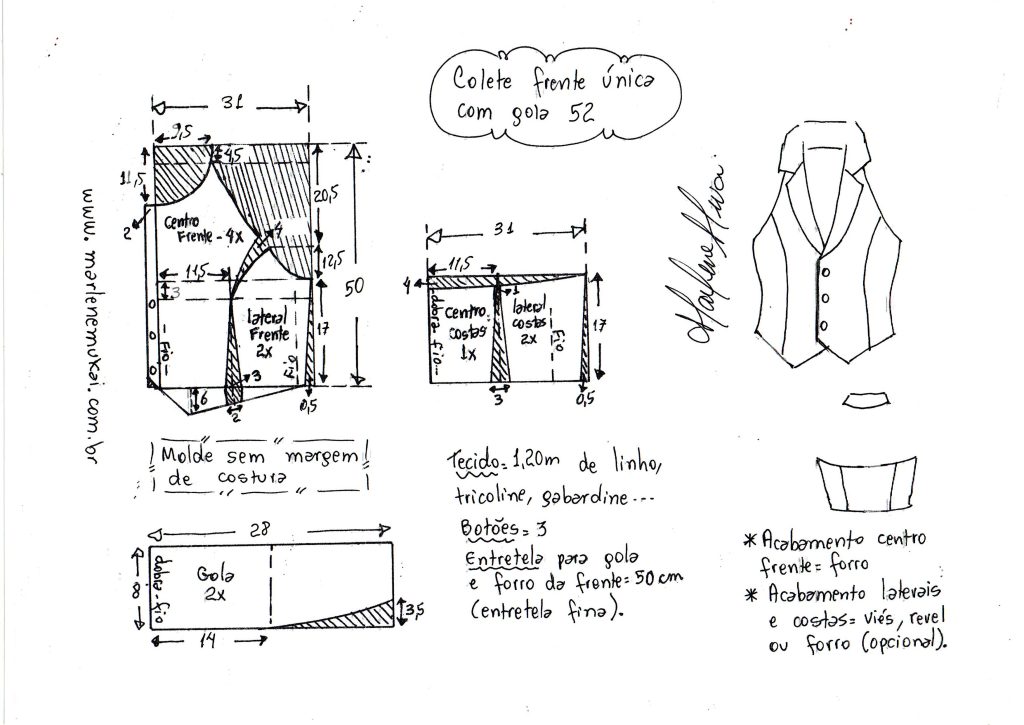 Colete frente única
com gola 52
31
9,5
4,5
11,5
2
20,5
Centro
Frente - 4x
4
12,5
11,5
3
50
17
lateral
Frente
2x
Fio
Fio
3
6
2
0,5
www.marlenemukai.com.br
31
11,5
4
1
dobra-fio
Centro
costas
1x
lateral
costas
2x
Fio
17
3
0,5
Marlene Mukai
Molde sem margem
de costura
28
8
dobra-fio
Gola
2x
3,5
14
Tecido = 1,20m de linho,
tricoline, gabardine ---
Botões = 3
Entretela para gola
e forro da frente = 50 cm
(entretela fina).
* Acabamento centro
frente = forro
* Acabamento laterais
e costas = viés, revel
ou forro (opcional).